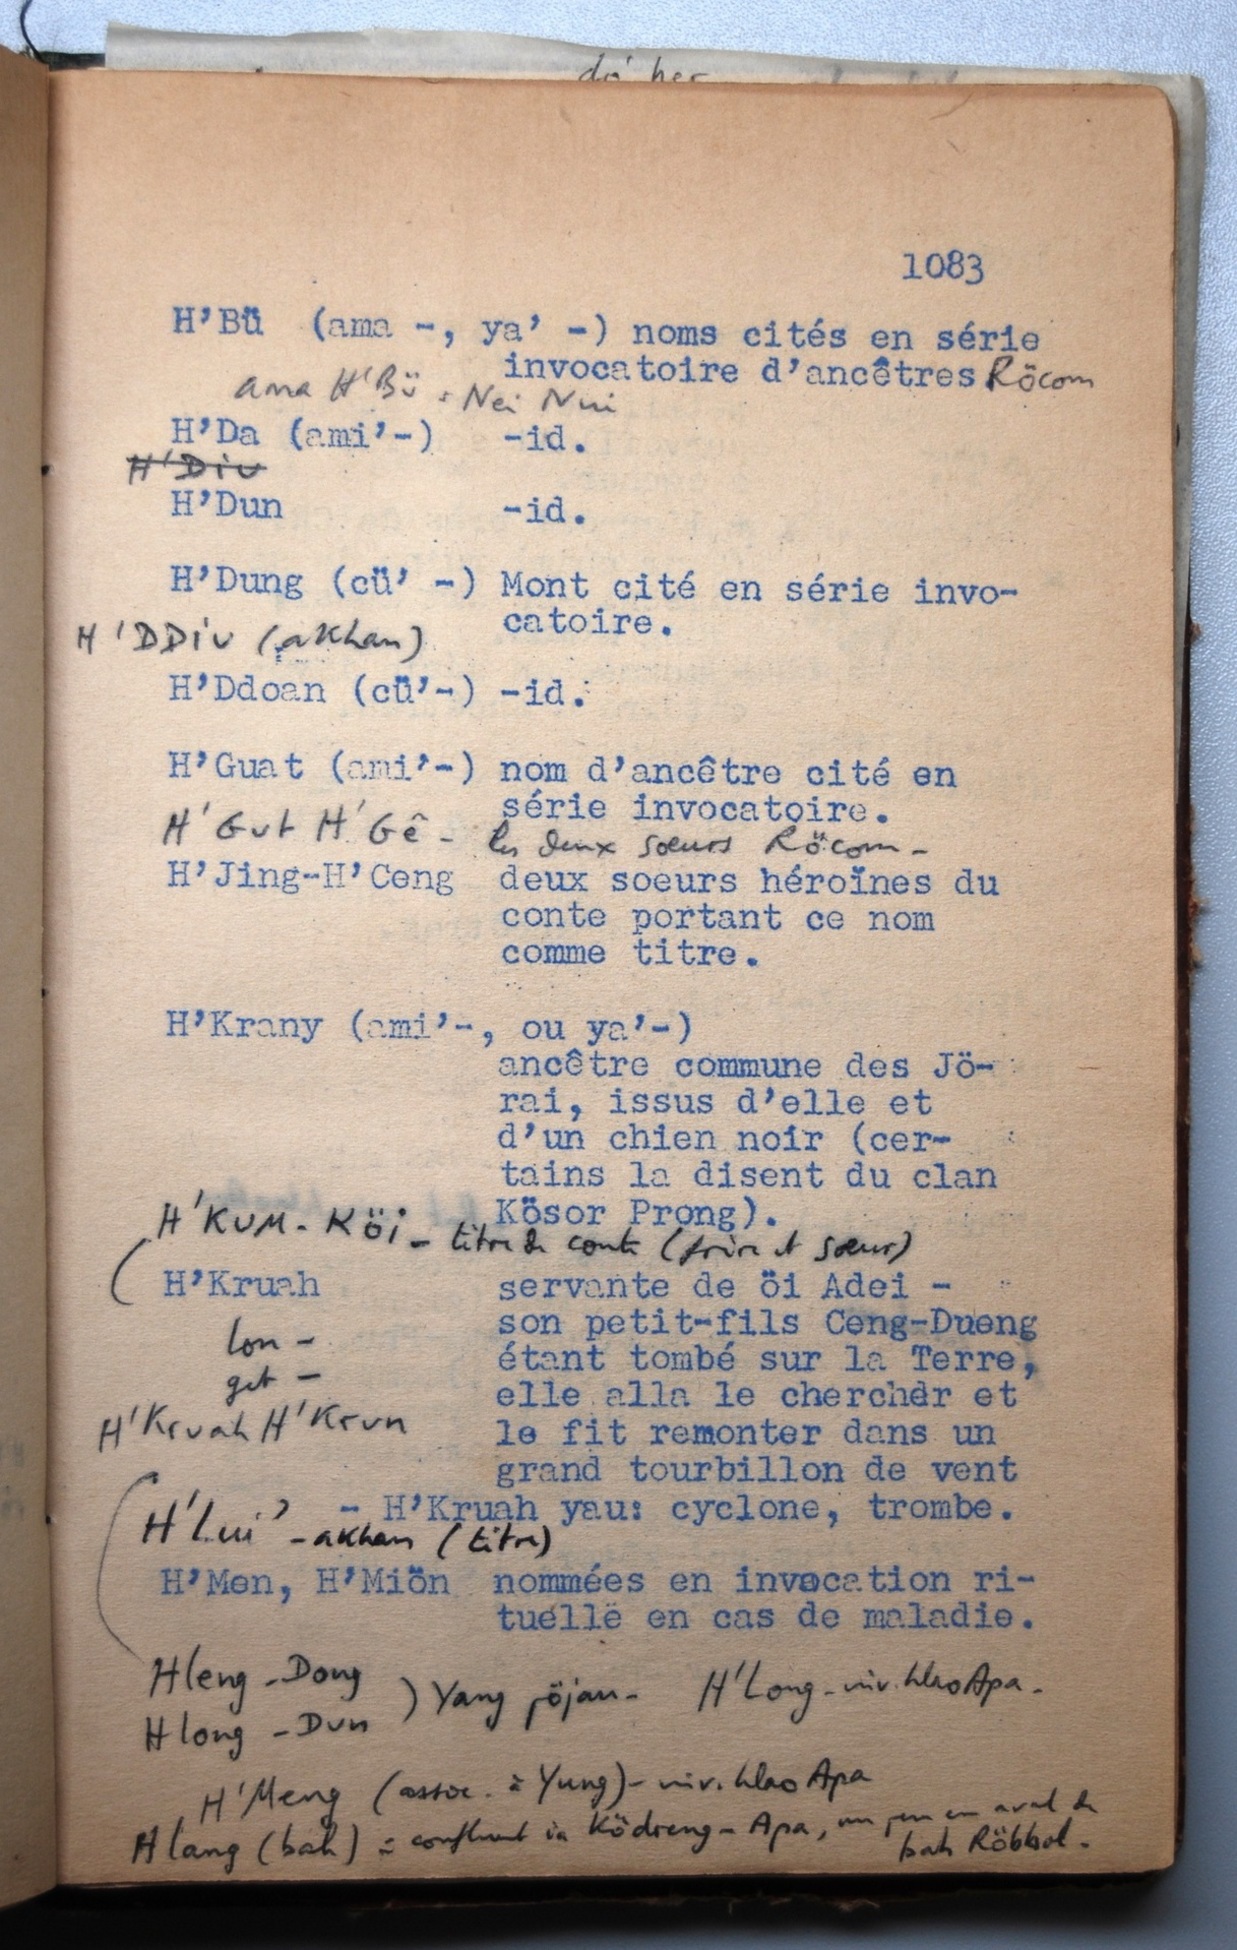 dơ̆ her
1083
H'Bü (ama -, ya' -) noms cités en série
invocatoire d'ancêtres Röcom
ama H'Bü : Nei Nui
H'Da (ami'-) -id.
H'Diu
H'Dun -id.
H'Dung (cü' -) Mont cité en série invo-
catoire.
H'DDiu (akhan)
H'Ddoan (cü'-) -id.
H'Guat (ami'-) nom d'ancêtre cité en
série invocatoire.
H'Gut H'Gê - les deux soeurs Röcom -
H'Jing-H'Ceng deux soeurs héroïnes du
conte portant ce nom
comme titre.
H'Krany (ami'-, ou ya'-)
ancêtre commune des Jö-
rai, issus d'elle et
d'un chien noir (cer-
tains la disent du clan
Kösor Prong).
H'KUM - KÖi - titre de conte (frère et soeur)
H'Kruah servante de öi Adei -
son petit-fils Ceng-Dueng
lon -
étant tombé sur la Terre,
get -
elle alla le cherchdr et
H'Kruah H'Krun le fit remonter dans un
grand tourbillon de vent
- H'Kruah yau: cyclone, trombe.
H'Lui' - akhan (titre)
H'Men, H'Miön nommées en invocation ri-
tuelle en cas de maladie.
Hleng - Dong
) Yang pöjau - H'Long - niv. hlao Apa -
Hlong - Dun
H'Meng (assoc. à Yung) - niv. hlao Apa
Hlang (bah) = confluent ia Ködreng - Apa, un peu en aval de
bah Röbbol -